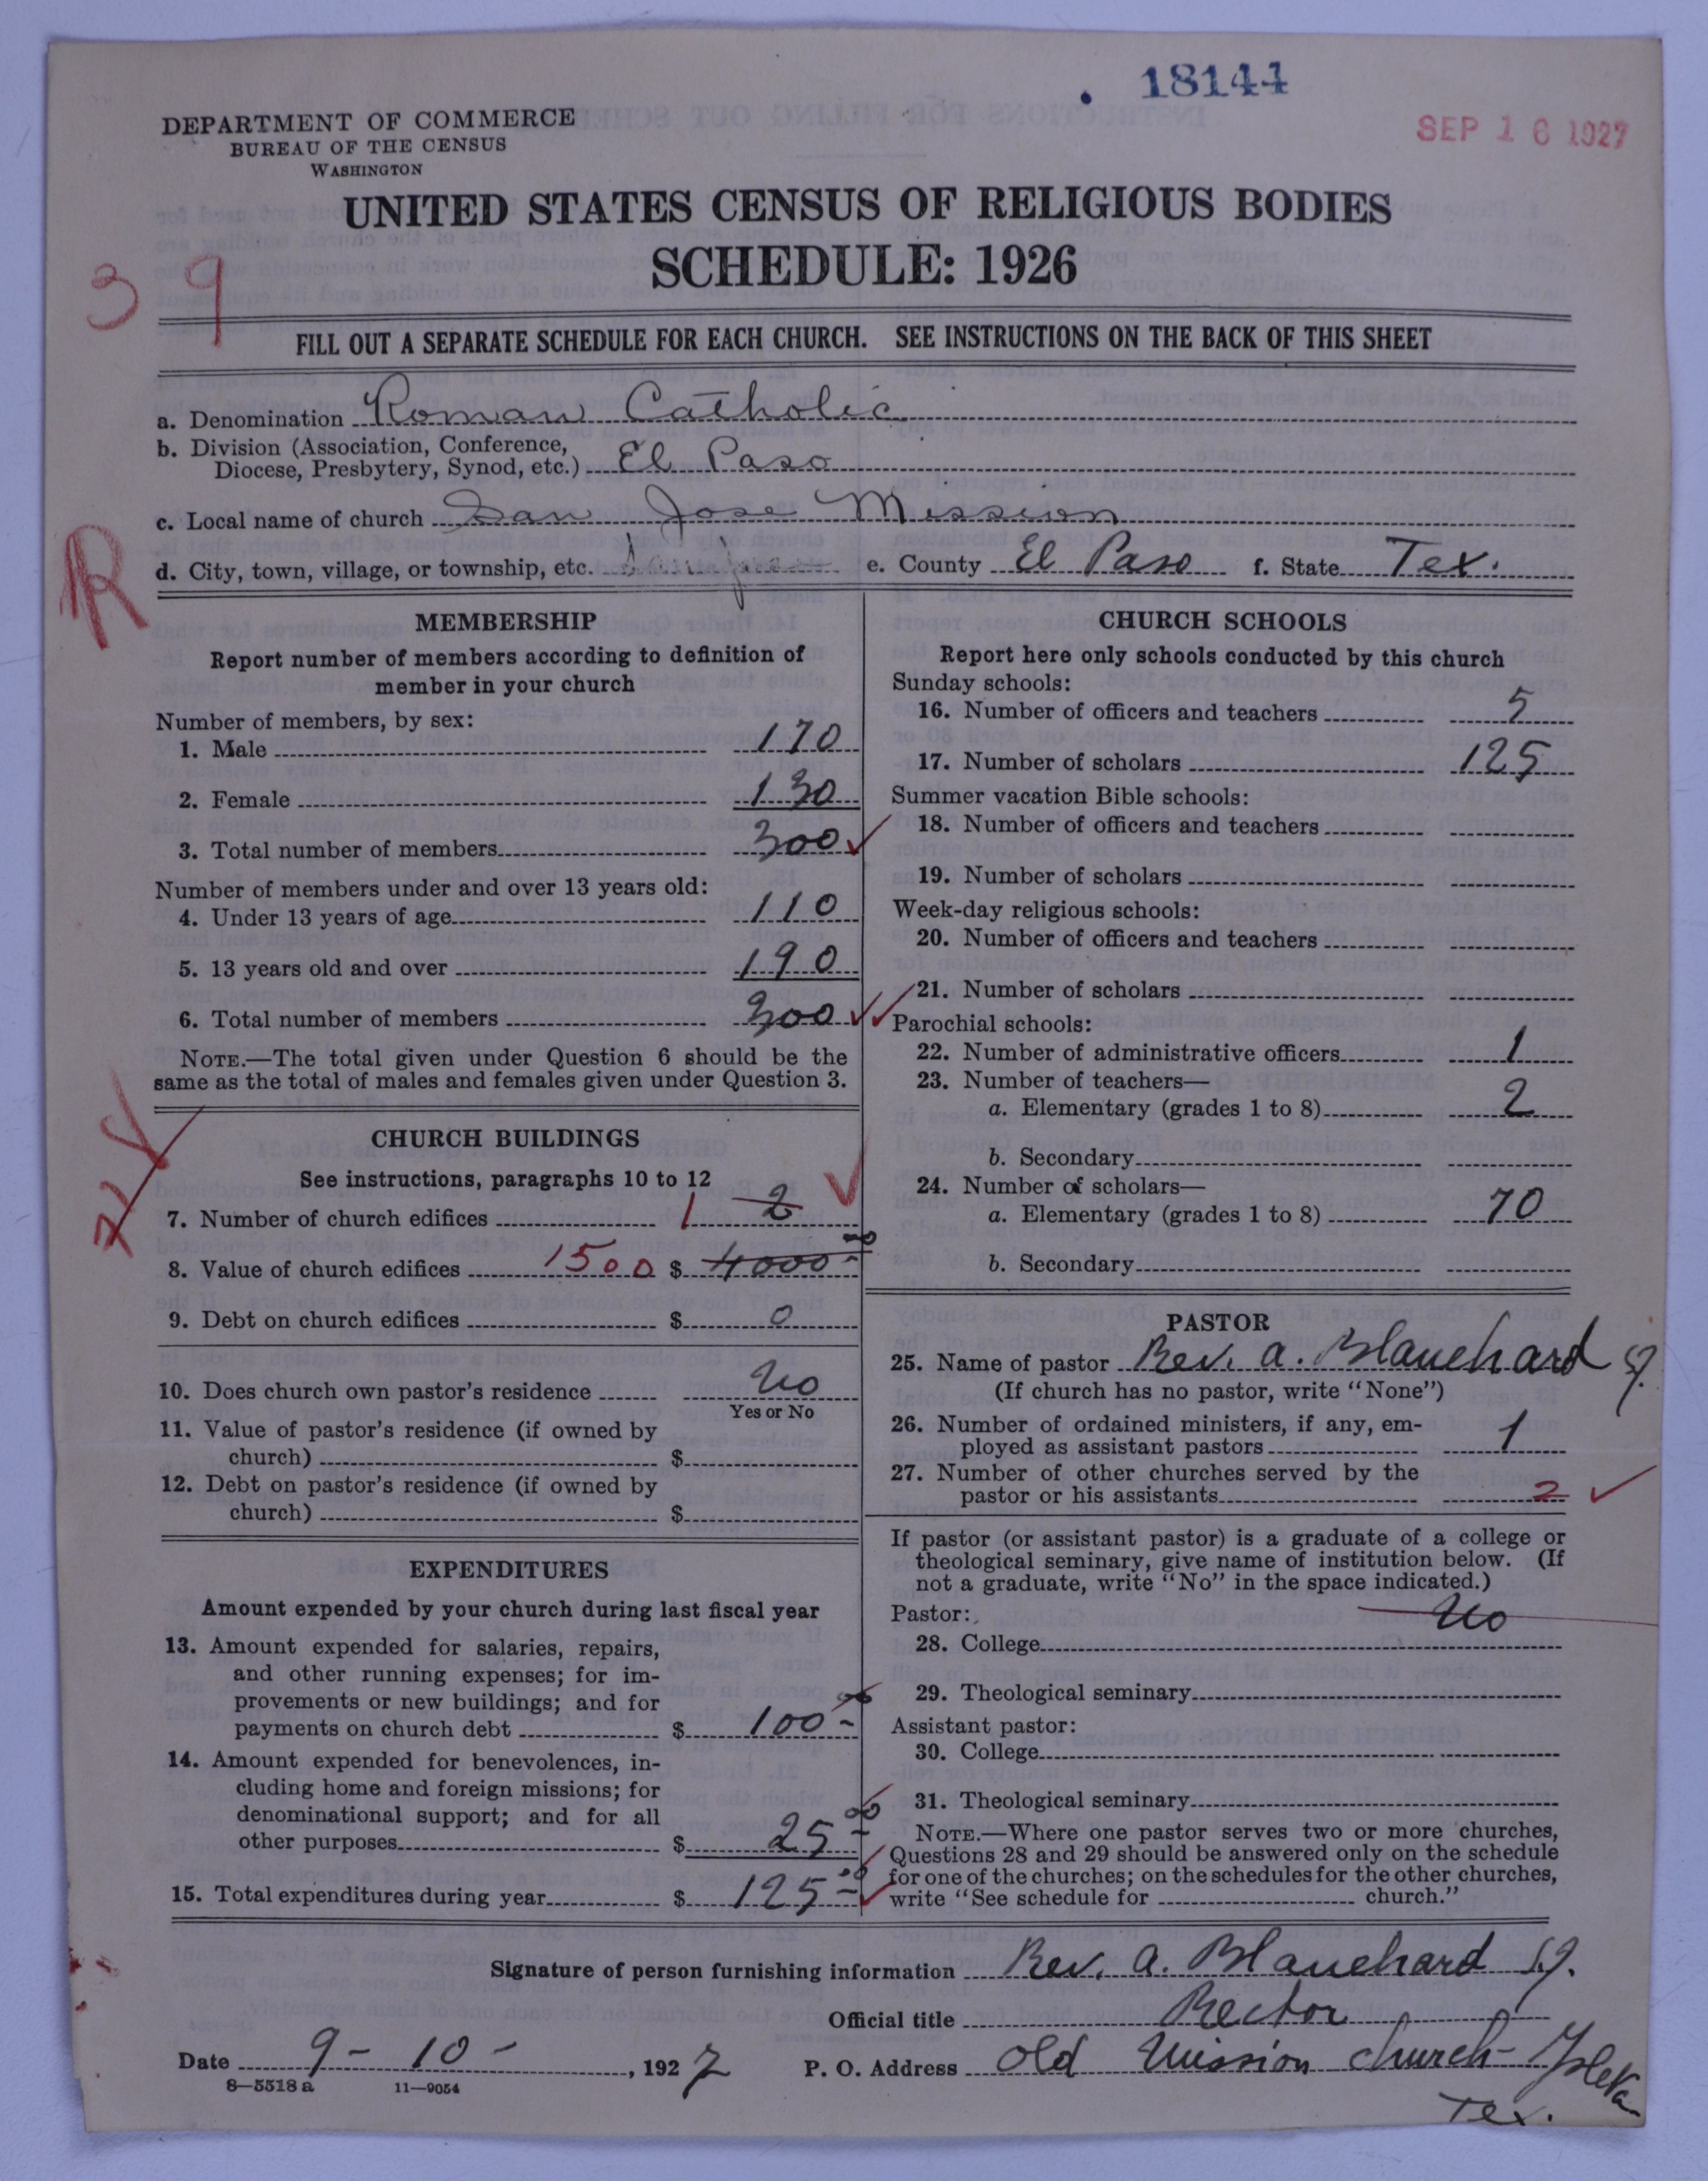 18144
SEP 16 1927
DEPARTMENT OF COMMERCE
BUREAU OF THE CENSUS
WASHINGTON
UNITED STATES CENSUS OF RELIGIOUS BODIES
SCHEDULE: 1926
39
FILL OUT A SEPARATE SCHEDULE FOR EACH CHURCH. SEE INSTRUCTIONS ON THE BACK OF THIS SHEET
a. Denomination Roman Catholic
b. Division (Association, Conference,
Diocese, Presbytery, Synod, etc.) El Paso
c. Local name of church San Jose Mission
R
d. City, town, village, or township, etc. San Jose e. County El Paso f. State Tex.
MEMBERSHIP
Report number of members according to definition of
member in your church
Number of members, by sex:
1. Male 170
2. Female 130
3. Total number of members 300
Number of members under and over 13 years old:
4. Under 13 years of age 110
5. 13 years old and over 190
6. Total number of members 300
NOTE.—The total given under Question 6 should be the
same as the total of males and females given under Question 3.
CHURCH BUILDINGS
See instructions, paragraphs 10 to 12
7. Number of church edifices 1 2
8. Value of church edifices 1500 $ 4000 00
9. Debt on church edifices $ 0
10. Does church own pastor's residence No
Yes or No
11. Value of pastor's residence (if owned by
church) $
12. Debt on pastor's residence (if owned by
church) $
EXPENDITURES
Amount expended by your church during last fiscal year
13. Amount expended for salaries, repairs,
and other running expenses; for im-
provements or new buildings; and for
payments on church debt $ 100 00
14. Amount expended for benevolences, in-
cluding home and foreign missions; for
denominational support; and for all
other purposes $ 25 00
15. Total expenditures during year $ 125 00
CHURCH SCHOOLS
Report here only schools conducted by this church
Sunday schools:
16. Number of officers and teachers 5
17. Number of scholars 125
Summer vacation Bible schools:
18. Number of officers and teachers
19. Number of scholars
Week-day religious schools:
20. Number of officers and teachers
21. Number of scholars
Parochial schools:
22. Number of administrative officers 1
23. Number of teachers—
a. Elementary (grades 1 to 8) 2
b. Secondary
24. Number of scholars—
a. Elementary (grades 1 to 8) 70
b. Secondary
PASTOR
25. Name of pastor Rev. A. Blanchard SJ.
(If church has no pastor, write "None")
26. Number of ordained ministers, if any, em-
ployed as assistant pastors 1
27. Number of other churches served by the
pastor or his assistants 2
If pastor (or assistant pastor) is a graduate of a college or
theological seminary, give name of institution below. (If
not a graduate, write "No" in the space indicated.)
Pastor: No
28. College
29. Theological seminary
Assistant pastor:
30. College
31. Theological seminary
NOTE.—Where one pastor serves two or more churches,
Questions 28 and 29 should be answered only on the schedule
for one of the churches; on the schedules for the other churches,
write "See schedule for church."
Signature of person furnishing information Rev. A. Blanchard S.J.
Official title Rector
Date 9-10-, 1927 P. O. Address Old Mission church- Ysleta
Tex.
8—5518 a 11—9054